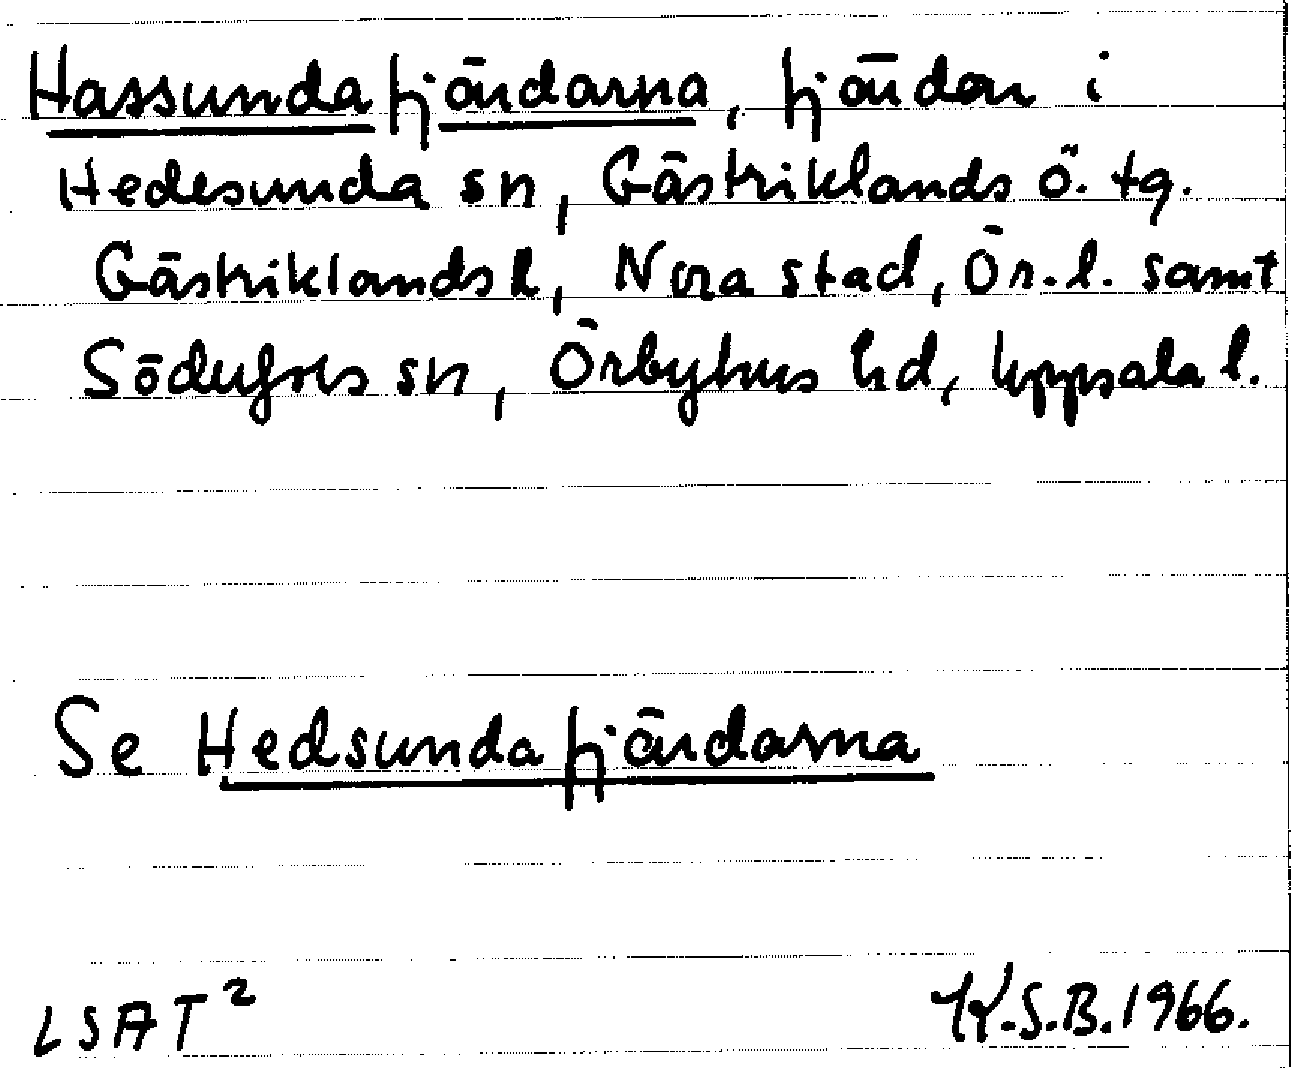 Hassundafjärdarna, fjärdar i
Hedesunda sn, Gästriklands ö. tg.
Gästriklands l, Nora stad, Ör. l. samt
Söderfors sn, Örbyhus hd, Uppsala l.
Se Hedsundafjärdarna
LSAT²
K.S.B. 1966.